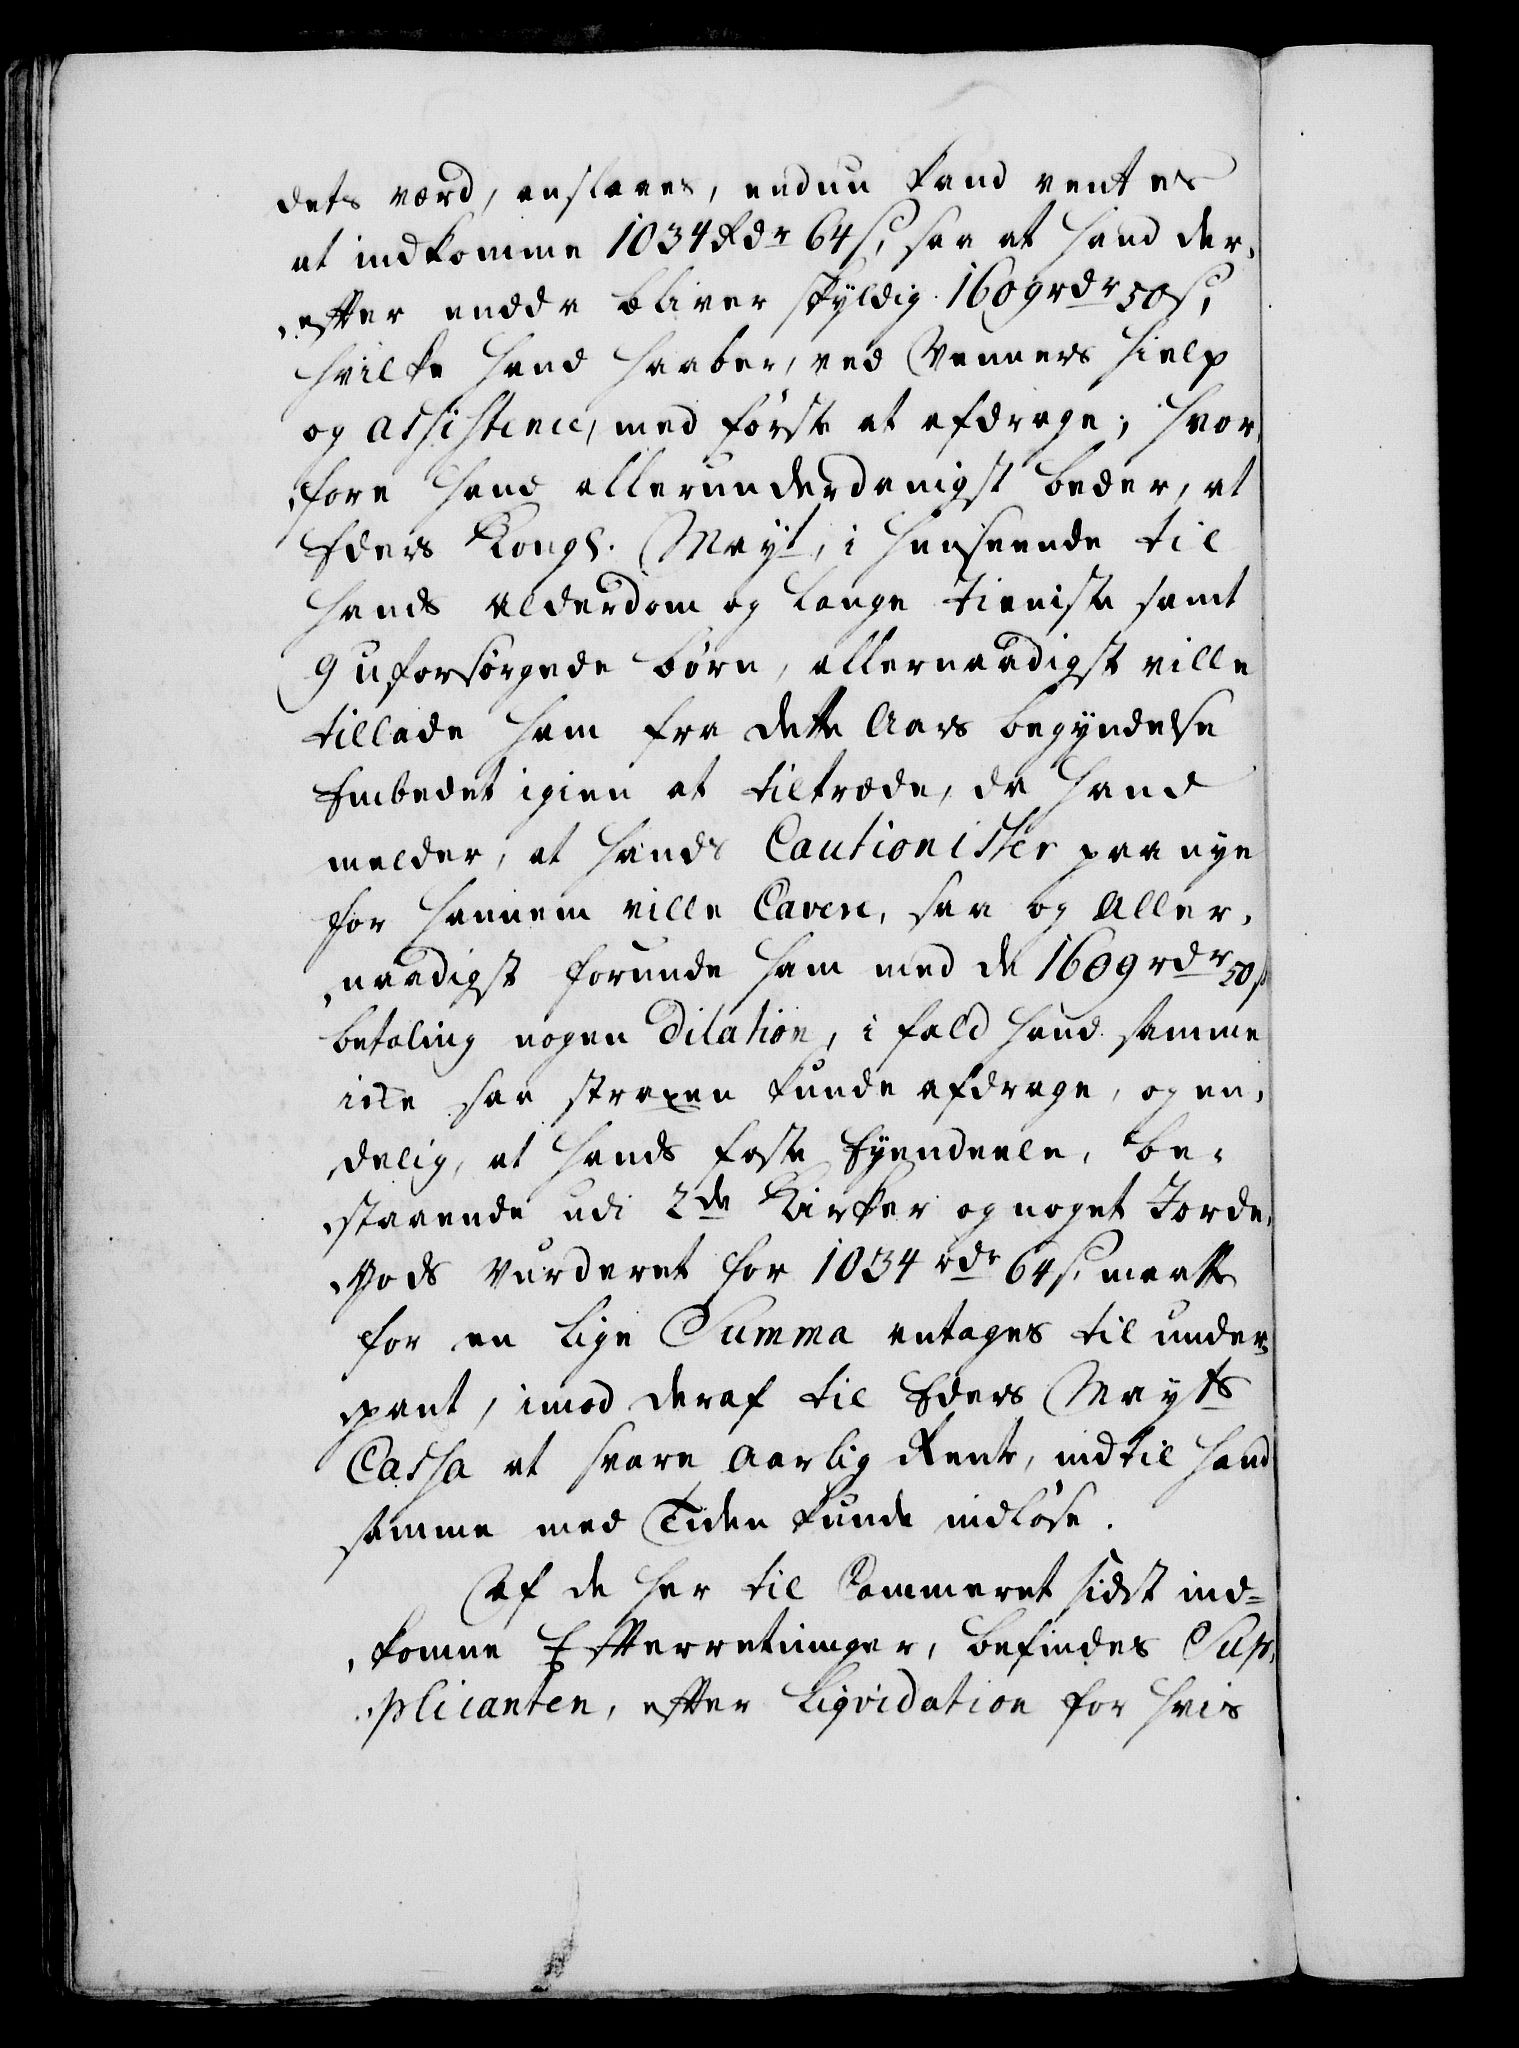 dets værd, anslaaes, endnu kand ventes
at indkomme 1034 Rdr 64 s, saa at hand der-
efter endda bliver skyldig 1609 rdr 50 s,
hvilke hand haaber, ved Venners hielp
og assistence, med første at afdrage; hvor-
fore hand allerunderdanigst beder, at
Eders Kongl. Mayt, i henseende til
hands alderdom og lange tieniste samt
9 uforsørgede børn, allernaadigst ville
tillade ham fra dette Aars begyndelse
Embedet igien at tiltræde, da hand
melder, at hands Cautionister paa nye
for hannem ville Cavere, saa og Aller-
naadigst forunde ham med de 1609 rdr 50 s
betaling nogen Dilation, i fald hand samme
icke saa straxen kunde afdrage, og en-
delig, at hands faste Eyendeele, be-
staaende udi 2de Kirker og noget Jorde-
Gods vurderet for 1034 rdr 64 s, maatte
for en lige Summa antages til under-
pant, imod deraf til Eders Mayts
Cassa at svare Aarlig Rente, indtil hand
samme med Tiden kunde indløse.
Af de her til Kammeret sidst ind-
komne Efterretninger, befindes Sup-
plicanten, efter Liqvidation for hvis